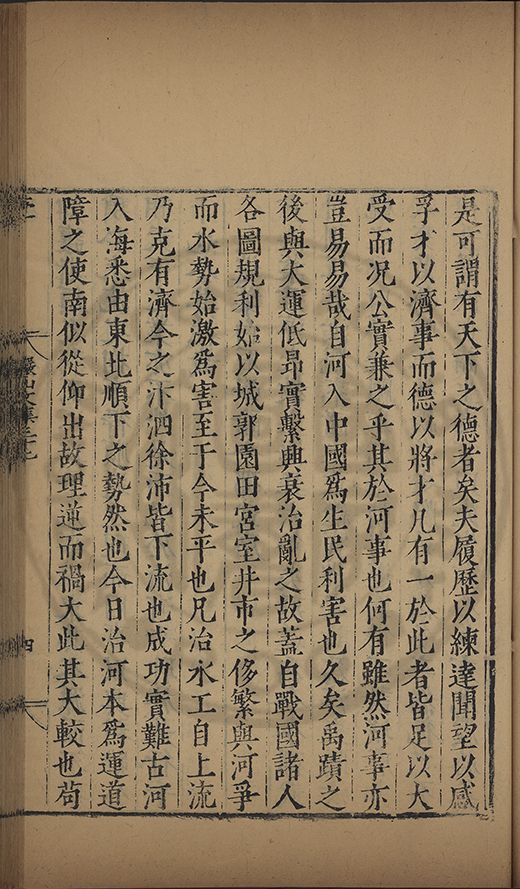 是可謂有天下之德者矣夫履歷以練達聞望以感
孚才以濟事而德以將才凡有一於此者皆足以大
受而况公實兼之乎其於河事也何有雖然河事亦
豈易易哉自河入中國爲生民利害也久矣禹蹟之
後與大運低昻實繫興衰治亂之故葢自戰國諸人
各圖規利始以城郭園田宮室井市之侈繁與河爭
而水勢始激爲害至于今未平也凡治水工自上流
乃克有濟今之汴泗徐沛皆下流也成功實難古河
入海悉由東北順下之勢然也今日治河本爲運道
障之使南似從仰出故理逆而禍大此其大較也苟
四